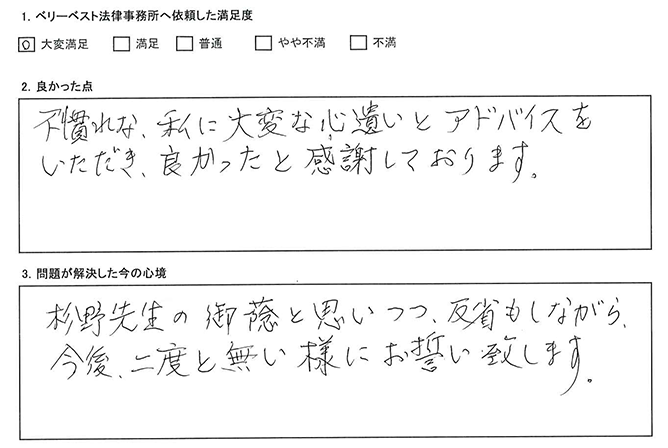 1. ベリーベスト法律事務所へ依頼した満足度
大変満足 満足 普通 やや不満 不満
2. 良かった点
不慣れな、私に大変な心遣いとアドバイスを
いただき、良かったと感謝しております。
3. 問題が解決した今の心境
杉野先生の御蔭と思いつつ、反省もしながら、
今後、二度と無い様にお誓い致します。